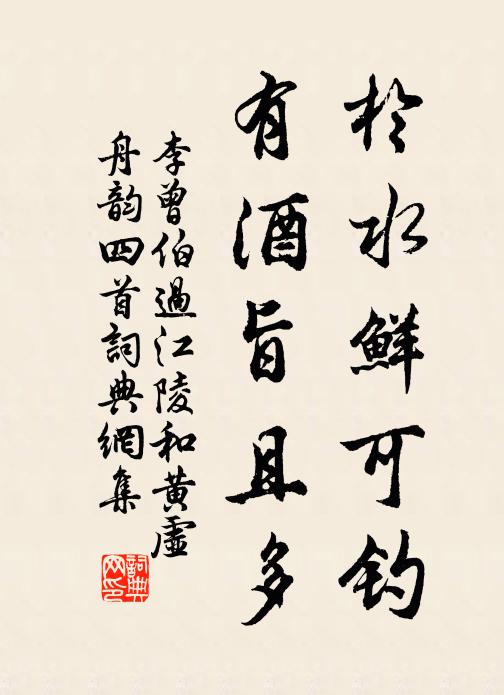 於水鮮可釣
有酒旨且多
李曾伯過江陵和黄虚
舟韵四首詞典網集
詞典
网印